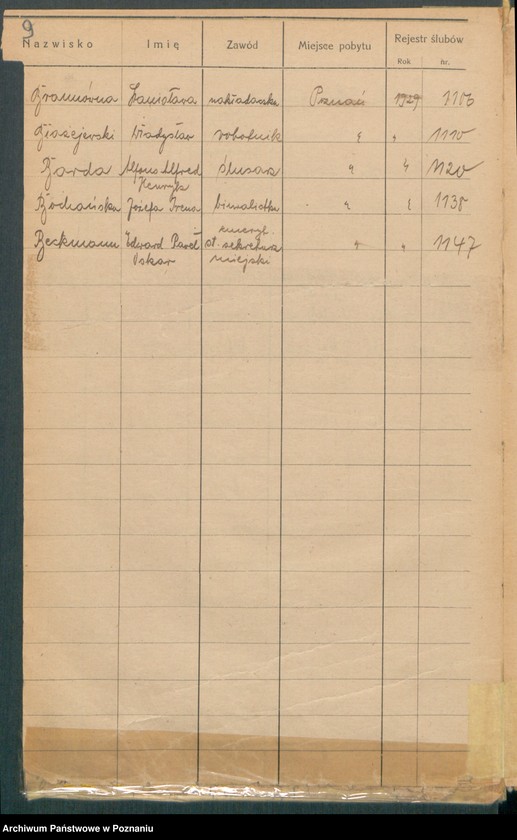 9
Nazwisko Imię Zawód Miejsce pobytu Rejestr ślubów
Rok nr.
Stanisława nakładaczka Poznań 1929 1106
Władysław robotnik " " 1110
Barda Alfons Alfred ślusarz " " 1120
Henryk
Bochańska Józefa Irena bieliźniarka " " 1138
emeryt.
Beckmann Edward Paweł st. sekretarz " " 1147
Oskar miejski
Archiwum Państwowe w Poznaniu